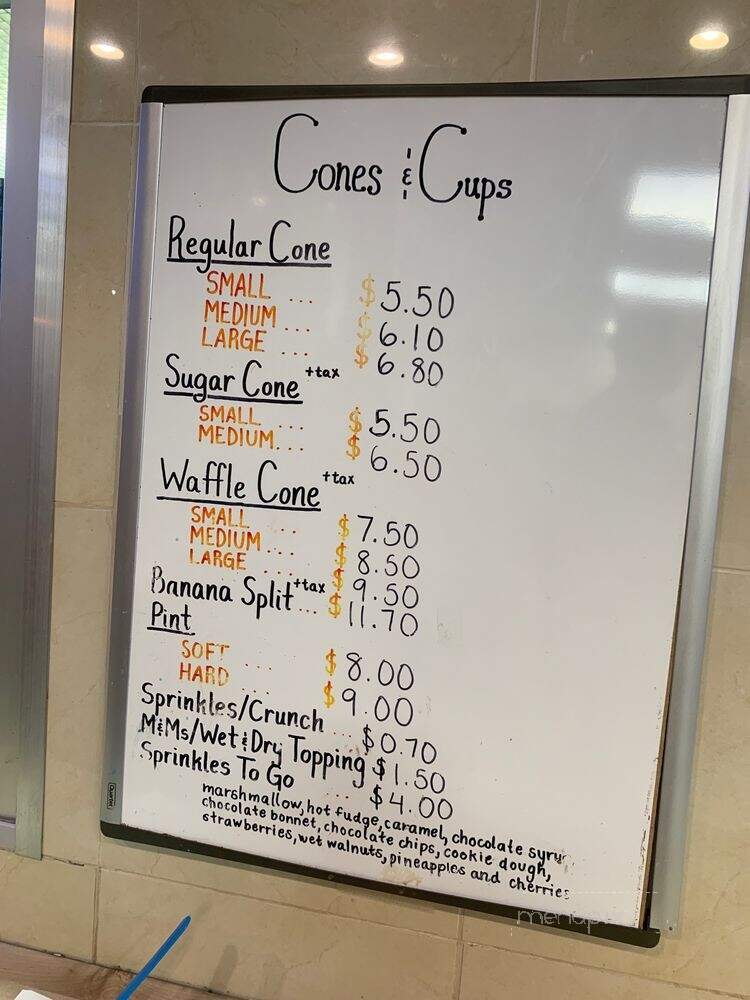 Cones & Cups
Regular Cone
SMALL ... $5.50
MEDIUM ... $6.10
LARGE ... $6.80
Sugar Cone +tax
SMALL ... $5.50
MEDIUM... $6.50
Waffle Cone +tax
SMALL .... $7.50
MEDIUM.... $8.50
LARGE .... $9.50
Banana Split +tax ... $11.70
Pint
SOFT .... $8.00
HARD .... $9.00
Sprinkles/Crunch ... $0.70
M&Ms/Wet & Dry Topping $1.50
Sprinkles To Go ... $4.00
marshmallow, hot fudge, caramel, chocolate syrup
chocolate bonnet, chocolate chips, cookie dough,
strawberries, wet walnuts, pineapples and cherries
Quartet